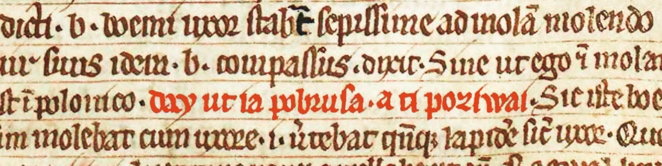 dicti · b · boemi uxor stabat sepissime ad molā molendo
ur suus idem · b · compassus · dixit · Sine ut ego ī molar
st ī polonico · day ut ia pobrusa · a ti poziwai · Sic iste boe
im molebat cum uxore · i · v̄tebat qn̄q; lapidē sic̄ uxor · Quo